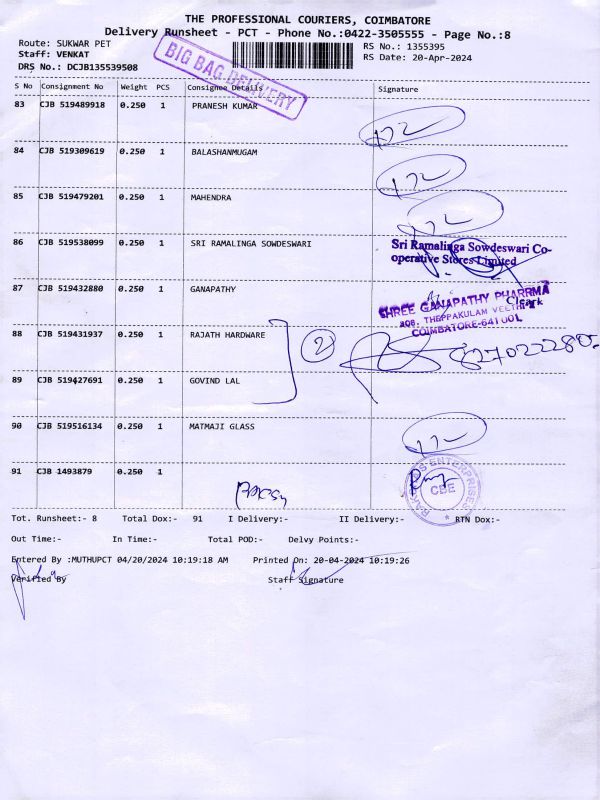 THE PROFESSIONAL COURIERS, COIMBATORE
Delivery Runsheet - PCT - Phone No.:0422-3505555 - Page No.:8
Route: SUKWAR PET
Staff: VENKAT
DRS No.: DCJB135539508
RS No.: 1355395
RS Date: 20-Apr-2024
BIG BAG DELIVERY
S No Consignment No Weight PCS Consignee Details Signature
83 CJB 519489918 0.250 1 PRANESH KUMAR
84 CJB 519309619 0.250 1 BALASHANMUGAM
85 CJB 519479201 0.250 1 MAHENDRA
86 CJB 519538099 0.250 1 SRI RAMALINGA SOWDESWARI
Sri Ramalinga Sowdeswari Co-
operative Stores Limited
Clerk
87 CJB 519432880 0.250 1 GANAPATHY
SHREE GANAPATHY PHARRMA
208, THEPPAKULAM VEETHI
COIMBATORE-641 001.
88 CJB 519431937 0.250 1 RAJATH HARDWARE
2
89 CJB 519427691 0.250 1 GOVIND LAL
90 CJB 519516134 0.250 1 MATMAJI GLASS
91 CJB 1493879 0.250 1
ENTERPRISES
CBE
Tot. Runsheet:- 8 Total Dox:- 91 I Delivery:- II Delivery:- RTN Dox:-
Out Time:- In Time:- Total POD:- Delvy Points:-
Entered By :MUTHUPCT 04/20/2024 10:19:18 AM Printed On: 20-04-2024 10:19:26
Verified By Staff Signature